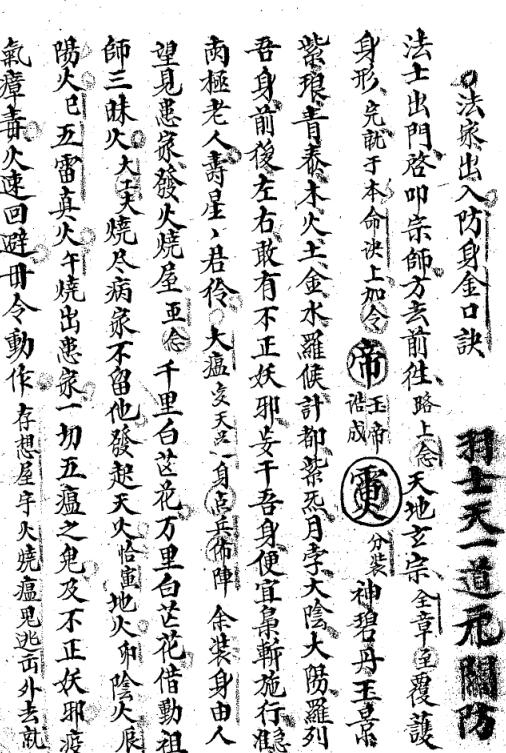 法家出入防身金口訣
羽士天一道元關防
法士出門啓叩宗師方去前徃路上念天地玄宗全章至覆護
身形完就于本命决上加令帝玉帝誥成 分裝神碧丹玉景
紫琅青泰木火土金水羅候計都紫炁月孛大陰大陽羅列
吾身前後左右敢有不正妖邪妄干吾身便宜梟斬施行
南極老人壽星〻君伶大瘟 一身点兵佈陣余裝身由人
望見患家發火燒屋亟念千里白芒花万里白芒花借動祖
師三昧火大工天燒尽病家不留他發起天火 寅地火卯陰火辰
陽火巳五雷真火午燒出患家一切五瘟之鬼及不正妖邪
氣瘴毒火速回避毋令動作存想屋宇火燒瘟鬼逃出外去就